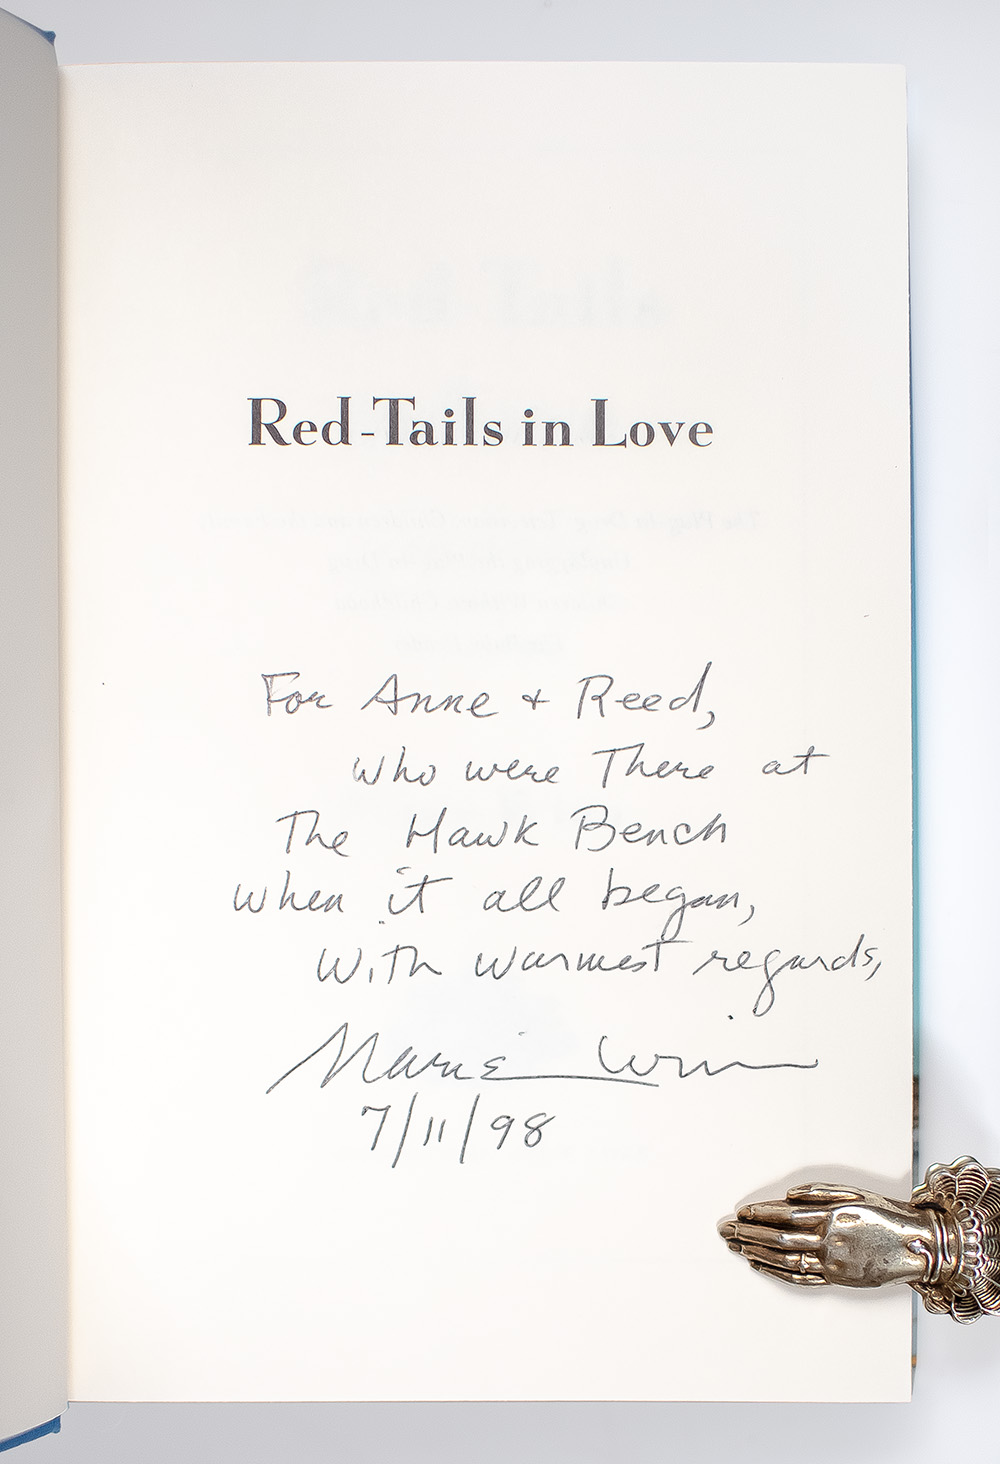 Red-Tails in Love
For Anne + Reed,
who were There at
The Hawk Bench
when it all began,
With warmest regards,
Marie Winn
7/11/98